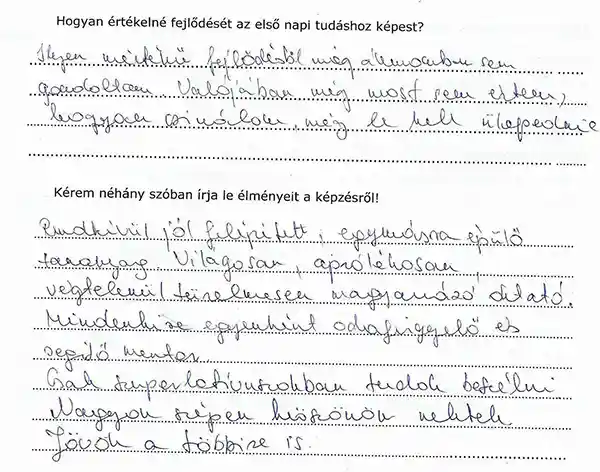 Hogyan értékelné fejlődését az első napi tudáshoz képest?
Ilyen mértékű fejlődésből még álmomban sem
gondoltam. Valójában még most sem értem,
hogyan csinálom, még le kell ülepednie
Kérem néhány szóban írja le élményeit a képzésről!
Rendkívül jól felépített, egymásra épülő
tananyag. Világosan, aprólékosan,
végtelenül türelmesen magyarázó oktató.
Mindenkire egyenként odafigyelő és
segítő mentor.
Csak szuperlatívuszokban tudok beszélni
Nagyon szépen köszönöm nektek
Jövök a többire is.